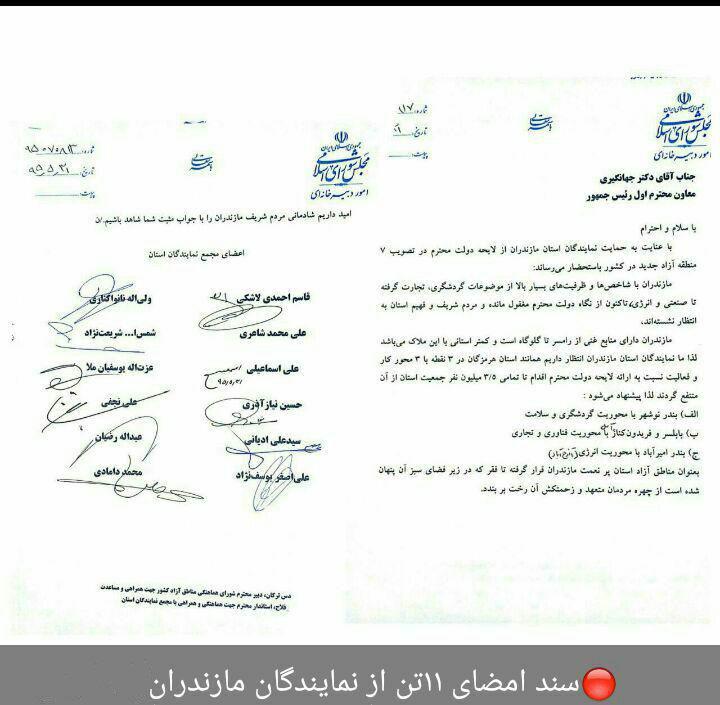 جمهوری اسلامی ایران
مجلس شورای اسلامی
امور دبیرخانه‌ای
شماره:
تاریخ:
پیوست:
جناب آقای دکتر جهانگیری
معاون محترم اول رئیس جمهور
با سلام و احترام
با عنایت به حمایت نمایندگان استان مازندران از لایحه دولت محترم در تصویب ۷
منطقه آزاد جدید در کشور باستحضار می‌رساند:
مازندران با شاخص‌ها و ظرفیت‌های بسیار بالا از موضوعات گردشگری، تجارت گرفته
تا صنعتی و انرژی تاکنون از نگاه دولت محترم مغفول مانده و مردم شریف و فهیم استان به
انتظار نشسته‌اند.
مازندران دارای منابع غنی از رامسر تا گلوگاه است و کمتر استانی با این ملاک می‌باشد
لذا ما نمایندگان استان مازندران انتظار داریم همانند استان هرمزگان در ۳ نقطه با ۳ محور کار
و فعالیت نسبت به ارائه لایحه دولت محترم اقدام تا تمامی ۳/۵ میلیون نفر جمعیت استان از آن
منتفع گردند لذا پیشنهاد می‌شود :
الف) بندر نوشهر با محوریت گردشگری و سلامت
ب) بابلسر و فریدون‌کنار با محوریت فناوری و تجاری
ج) بندر امیرآباد با محوریت انرژی
بعنوان مناطق آزاد استان پر نعمت مازندران قرار گرفته تا فقر که در زیر فضای سبز آن پنهان
شده است از چهره مردمان متعهد و زحمتکش آن رخت بر بندد.
جمهوری اسلامی ایران
مجلس شورای اسلامی
امور دبیرخانه‌ای
شماره:
تاریخ: ۹۵,۵,۳۱
پیوست:
امید داریم شادمانی مردم شریف مازندران را با جواب مثبت شما شاهد باشیم./ن
اعضای مجمع نمایندگان استان
قاسم احمدی لاشکی ولی‌اله نانواکناری
علی محمد شاعری شمس‌ا... شریعت‌نژاد
علی اسماعیلی عزت‌اله یوسفیان ملا
۹۵/۵/۳۱
حسین نیازآذری علی نجفی
سیدعلی ادیانی عبداله رضیان
علی‌اصغر یوسف‌نژاد محمد دامادی
دس ترکان، دبیر محترم شورای هماهنگی مناطق آزاد کشور جهت همراهی و مساعدت
فلاح، استاندار محترم جهت هماهنگی و همراهی با مجمع نمایندگان استان
سند امضای ۱۱تن از نمایندگان مازندران